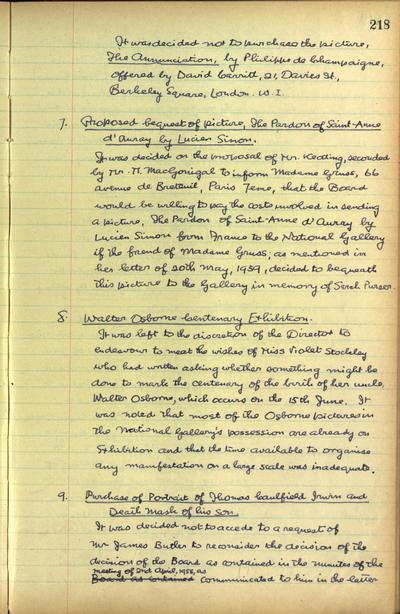 218
It was decided not to purchase the picture,
The Annunciation, by Philippe de Champaigne,
offered by David Carritt, 21, Davies St.,
Berkeley Square, London. W.I.
7. Proposed bequest of picture, The Pardon of Saint-Anne
d'Auray by Lucien Simon.
It was decided on the proposal of Mr. Keating, seconded
by Mr. M. MacGonigal to inform Madame Gruss, 66
avenue de Breteuil, Paris 7eme, that the Board
would be willing to pay the costs involved in sending
a picture, The Pardon of Saint-Anne d'Auray by
Lucien Simon from France to the National Gallery
if the friend of Madame Gruss, as mentioned in
her letter of 20th May, 1959, decided to bequeath
this picture to the Gallery in memory of Sarah Purser.
8. Walter Osborne Centenary Exhibition.
It was left to the discretion of the Director to
endeavour to meet the wishes of Miss Violet Stockley
who had written asking whether something might be
done to mark the centenary of the birth of her uncle,
Walter Osborne, which occurs on the 15th June. It
was noted that most of the Osborne pictures in
the National Gallery's possession are already on
Exhibition and that the time available to organise
any manifestation on a large scale was inadequate.
9. Purchase of Portrait of Thomas Caulfield Irwin and
Death Mask of his son.
It was decided not to accede to a request of
Mr James Butler to reconsider the decision of the
decision of the Board as contained in the minutes of the
meeting of 2nd April, 1958, as
Board as contained communicated to him in the letter